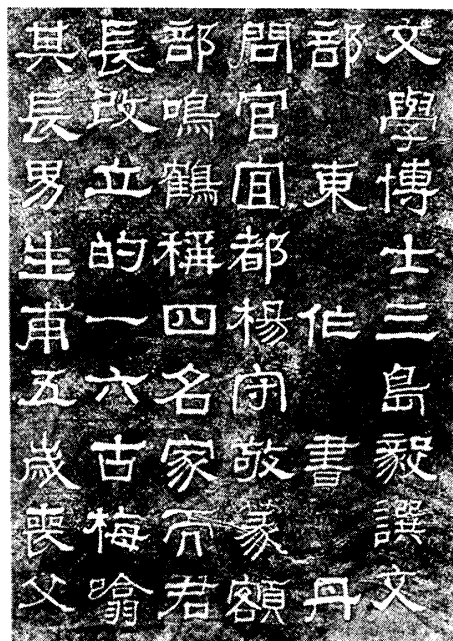 文學博士三島毅譔文
部東作書丹
問官宜都楊守敬篆額
部鳴鶴稱四名家而君
長改立的一六古梅噏
其長男生甫五歲喪父